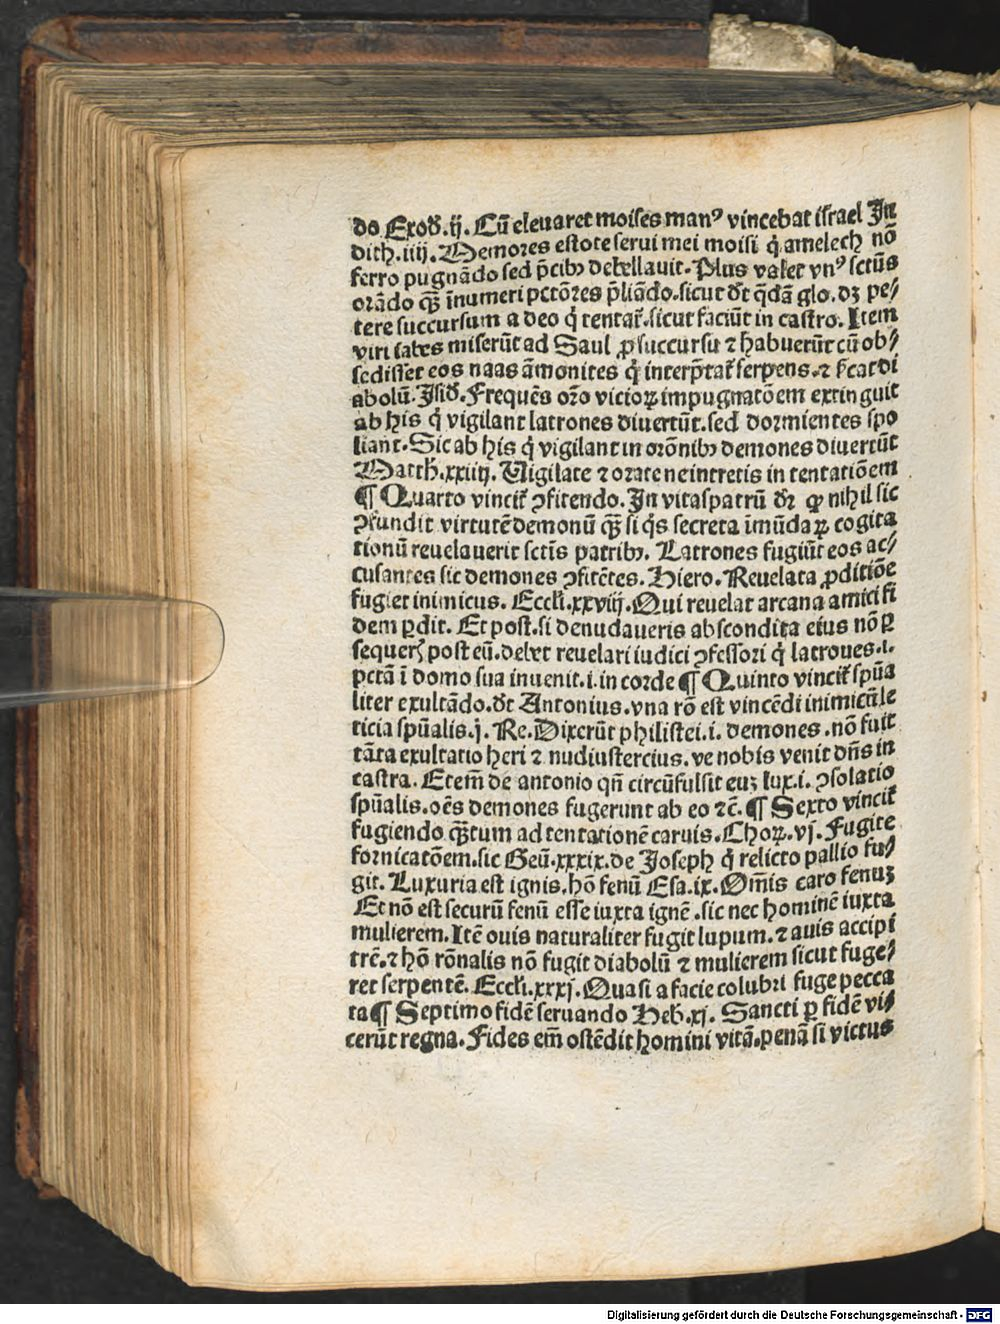 do Exoð.ij. Cū eleuaret moises manꝰ vincebat israel Ju
dith.iiij. Memores estote serui mei moisi q̇ amelech nō
ferro pugnādo sed p̄cibꝫ debellauit. Plus valet vnꝰ sctūs
orādo qꝫ̄ īnumeri pctōres p̄liādo. sicut dr̄ q̄dā glo. dꝫ pe⸗
tere succursum a deo q̇ tentat̄. sicut faciūt in castro. Item
viri iabes miserūt ad Saul ꝓ succursu ⁊ habuerūt cū ob⸗
sedisset eos naas āmonites q̇ interp̄tat̄ serpens. ⁊ s̄cat di
abolū. Isið. Frequēs oro̅ vicioꝝ impugnatōem extinguit
ab his q̇ vigilant latrones diuertūt. sed dormientes spo
liant. Sic ab his q̇ vigilant in orōnibꝫ demones diuertūt
Matth.xxiiij. Uigilate ⁊ orate ne intretis in tentatiōem
¶ Quarto vincit̄ ꝯfitendo. In vitaspatrū dr̄ ꝙ nihil sic
ꝯfundit virtutē demonū qꝫ̄ si q̇s secreta īmūdaꝝ cogita
tionū reuelauerit sctīs patribꝫ. Latrones fugiūt eos ac⸗
cusantes sic demones ꝯfitētes. Hiero. Reuelata ꝓditiōe
fugiet inimicus. Eccłi.xxviij. Qui reuelat arcana amici fi
dem ꝑdit. Et post. si denudaueris abscondita eius nō ꝑ
sequer̄ post eū. debet reuelari iudici ꝯfessori q̇ latroues .i.
pctā ī domo sua inuenit .i. in corde ¶ Quinto vincit̄ spūa
liter exultādo. dt̄ Antonius. vna rō est vincēdi inimicū le
ticia spūalis. j. Re. Dixerūt philistei .i. demones. nō fuit
tāta exultatio heri ⁊ nudiustercius. ve nobis venit dn̄s in
castra. Etem̄ de antonio qn̄ circūfulsit euꝫ lux .i. ꝯsolatio
spūalis. oēs demones fugerunt ab eo ⁊c̄. ¶ Sexto vincit̄
fugiendo qꝫ̄tum ad tentationē caruis. Choꝝ. vj. Fugite
fornicatōem. sic Geū.xxxix. de Joseph q̇ relicto pallio fu⸗
git. Luxuria est ignis. hō fenū Esa.ix. Om̄is caro fenuꝫ
Et nō est securū fenū esse iuxta ignē. sic nec hominē iuxta
mulierem. Itē ouis naturaliter fugit lupum. ⁊ auis accipi
trē. ⁊ hō rōnalis nō fugit diabolū ⁊ mulierem sicut fuge⸗
ret serpentē. Eccłi.xxxj. Quasi a facie colubri fuge pecca
ta ¶ Septimo fidē seruando Heb̄.xj. Sancti ꝑ fidē vi⸗
cerūt regna. Fides em̄ ostēdit homini vitā. penā si victus
Digitalisierung gefördert durch die Deutsche Forschungsgemeinschaft - DFG